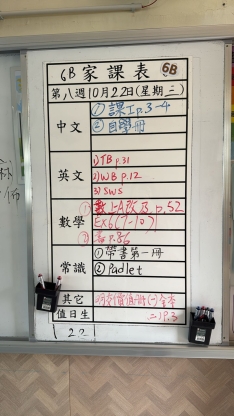 6B家課表 6B
第八週10月22日(星期三)
中文
①課工p.3-4
②自學冊
英文
1)TB p.31
2)WB p.12
3)SWS
數學
①數上A改乃 p.52
EX6(7-10)
③ p.36
常識
①帶書第一冊
②Padlet
其它
二)P.3
值日生
22